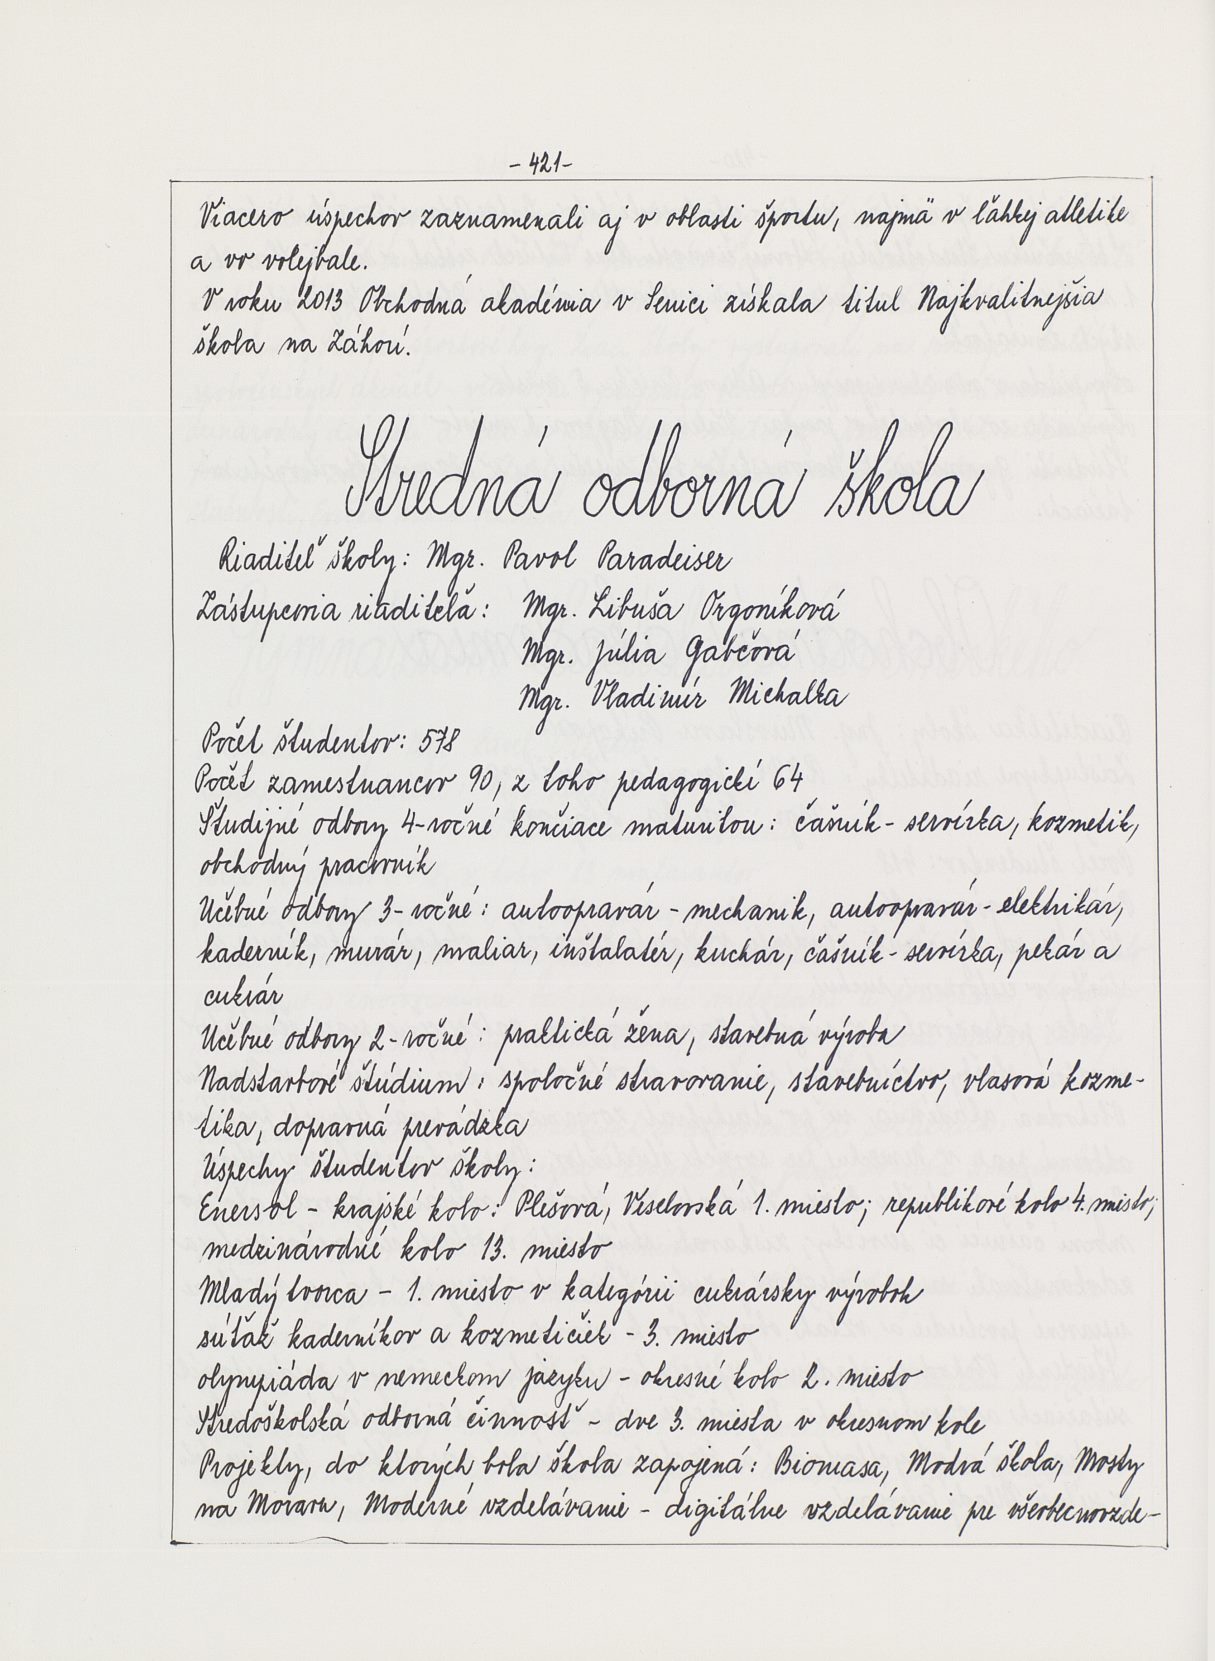 - 421 -
Viacero úspechov zaznamenali aj v oblasti športu, najmä v ľahkej atletike
a vo volejbale.
V roku 2013 Obchodná akadémia v Senici získala titul Najkvalitnejšia
škola na Záhorí.
Stredná odborná škola
Riaditeľ školy: Mgr. Pavol Paradeiser
Zástupcovia riaditeľa: Mgr. Libuša Orgoníková
Mgr. Júlia Gabčová
Mgr. Vladimír Michalka
Počet študentov: 578
Počet zamestnancov 90, z toho pedagogickí 64
Študijné odbory 4-ročné končiace maturitou: čašník - servírka, kozmetik,
obchodný pracovník
Učebné odbory 3-ročné: autoopravár - mechanik, autoopravár - elektrikár,
kaderník, murár, maliar, inštalatér, kuchár, čašník - servírka, pekár a
cukrár
Učebné odbory 2-ročné: praktická žena, stavebná výroba
Nadstavbové štúdium: spoločné stravovanie, stavebníctvo, vlasová kozme-
tika, dopravná prevádzka
Úspechy študentov školy:
Enersol - krajské kolo: Plešová, Veselovská 1. miesto; republikové kolo 4. miesto;
medzinárodné kolo 13. miesto
Mladý tvorca - 1. miesto v kategórii cukrársky výrobok
súťaž kaderníkov a kozmetičiek - 3. miesto
olympiáda v nemeckom jazyku - okresné kolo 2. miesto
Stredoškolská odborná činnosť - dve 3. miesta v okresnom kole
Projekty, do ktorých bola škola zapojená: Biomasa, Modrá škola, Mosty
na Moravu, Moderné vzdelávanie - digitálne vzdelávanie pre všeobecnovzde-